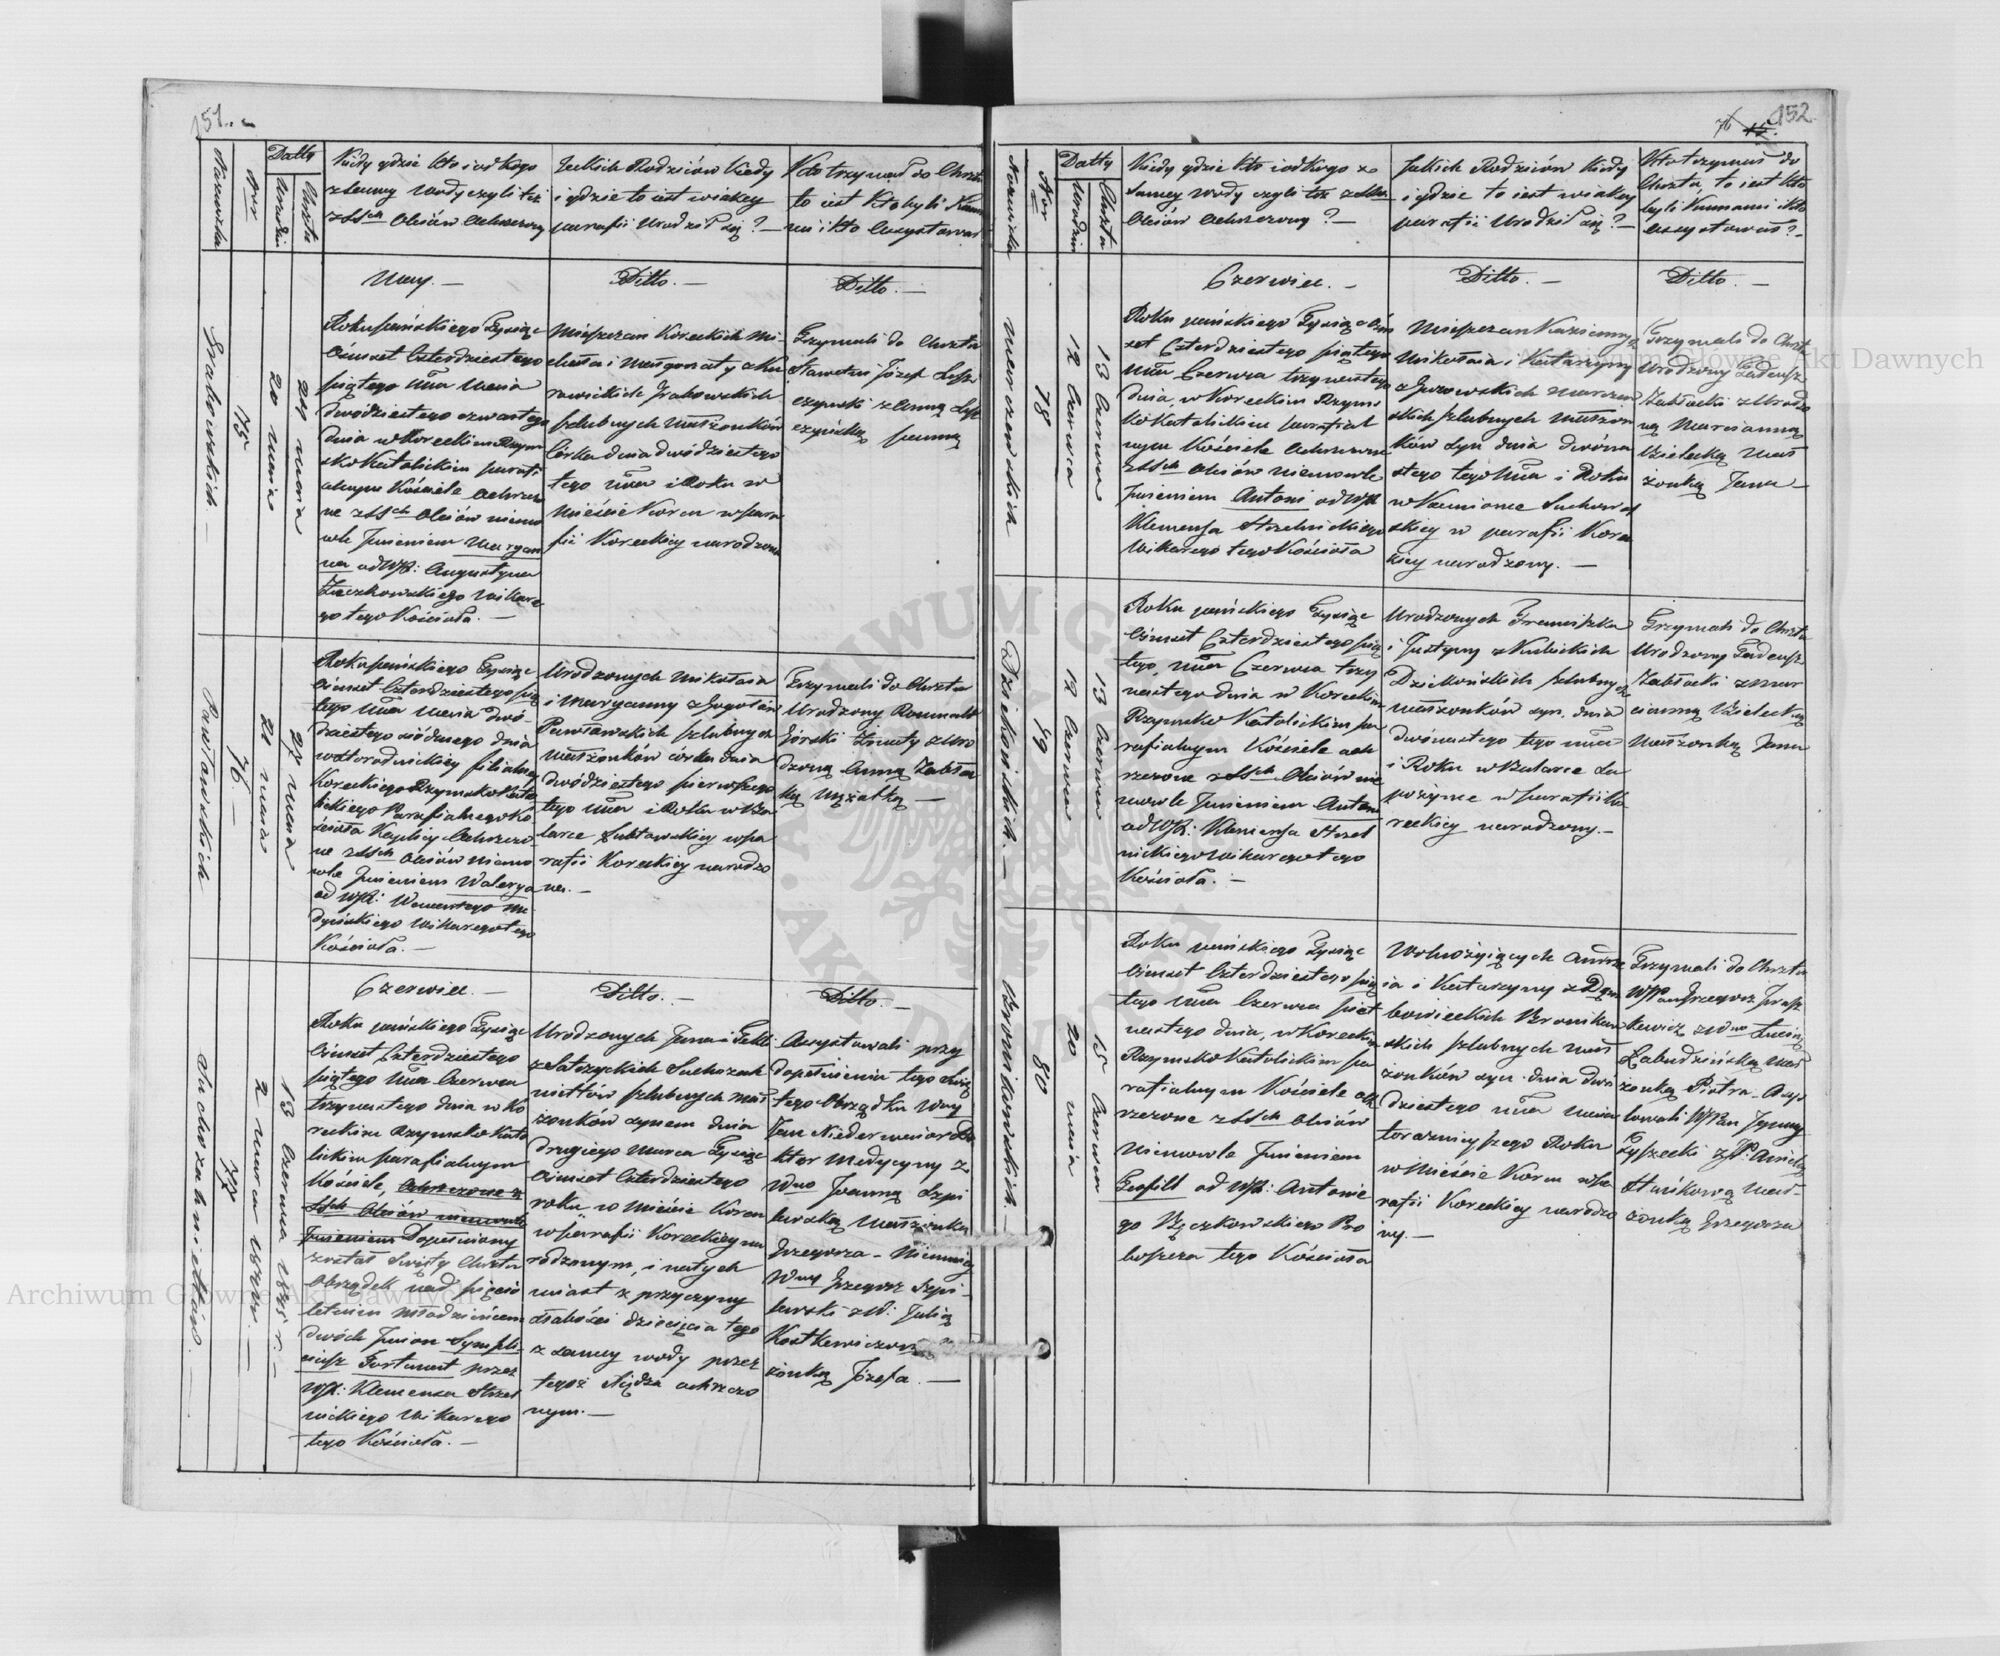 151.
Nazwiska
Nro
Datty
Urodzin
Chrztu
Kiedy gdzie kto i od kogo
z samey wody czyli też
z SSch Oleiów Ochrzczony
Jakich Rodziców Kiedy
i gdzie to iest w iakiey
parafii Urodził się? —
Kto trzymał do Chrztu
to iest Kto byli Kuma-
mi i kto Assystował
May. —
Ditto. —
Ditto. —
Grabowskich. —
75
20 maia
24 maia
Roku pańskiego Tysiąc
Ośmset Czterdziestego
piątego Mca Maia
dwodziestego czwartego
dnia w Koreckim Rzym-
sko Katolickim parafi-
alnym Kościele Ochrzczo-
ne z SSch Oleiów niemo-
wle Jmieniem Maryan-
na od WJX: Augustyna
Żaczkowskiego Wikare-
go tego Kościoła. —
Mieszczan Koreckich Mi-
chała i Małgorzaty z Ku-
rowickich Grabowskich
szlubnych Małżonków
Córka dnia dwódziestego
tego Mca i Roku w
Mieście Korcu w para-
fii Koreckiey narodzona
Trzymali do Chrztu
Sławetni Józef Lesz-
czyński z Anną Lesz-
czyńską panną
Pawławskich
76. —
21 maia
27 maia
Roku pańskiego Tysiąc
Ośmset Czterdziestego pią-
tego Mca Maia dwó-
dziestego siódmego dnia
w Horodnickiey filialney
Koreckiego Rzymsko Kato-
lickiego Parafialnego Ko-
ścioła Kaplicy Ochrzczo-
ne z SSch Oleiów niemo-
wle Jmieniem Walerya
od WJX: Wawrzyńca
Wikarego tego
Kościoła. —
Urodzonych Mikołaia
i Maryanny z
Pawławskich szlubnych
małżonków córka dnia
dwódziestego pierwszego
tego Mca i Roku w Bu-
darce w pa-
rafii Koreckiey narodzo-
na. —
Trzymali do Chrztu
Urodzony Romuald
Górski z Uro-
dzoną Anną Zabłoc-
ką Mężatką —
Czerwiec. —
Ditto. —
Ditto. —
Suchozahnittów. —
77
2 Marca 1840 r. —
13 Czerwca 1845 r. —
Roku pańskiego Tysiąc
Ośmset Czterdziestego
piątego Mca Czerwca
trzynastego dnia w Ko-
reckim Rzymsko Kato-
lickim parafialnym
Kościele, Ochrzczone z
SSch Oleiów niemowle
Jmieniem Dopełniony
został Święty Chrztu
Obrządek nad pięcio
letnim Młodzieńcem
dwóch Jmion Sympli-
ciusz Fortunat przez
WJX: Klemensa Strzel-
nickiego Wikarego
tego Kościoła. —
Urodzonych Jana i Tekli
z Suchozah-
nittów szlubnych Mał-
żonków synem dnia
drugiego Marca Tysiąc
Ośmset Czterdziestego
roku w Mieście Korcu
w parafii Koreckiey na-
rodzonym, i natych-
miast z przyczyny
słabości dziecięcia tego
z samey wody przez
tegoż Xiędza ochrzczo-
nym. —
Assystowali przy
dopełnieniu tego Świę-
tego Obrządku Wny
Jan Niedermeier Do-
ktor Medycyny z
Wną Joanną Szpi-
lewską Małżonką
Grzegorza — Niemniey
Wny Grzegorz Szpi-
lewski z W: Julią
Kostkiewiczową
żonką Józefa. —
76 152.
Nazwiska
Nro
Datty
Urodzin
Chrztu
Kiedy gdzie kto i od kogo z
samey wody czyli też z SSch
Oleiów Ochrzczony? —
Jakich Rodziców Kiedy
i gdzie to iest w iakiey
parafii Urodził się? —
Kto trzymał do
Chrztu, to iest kto
byli Kumami i kto
Assystował? —
Czerwiec. —
Ditto. —
Ditto. —
Marczewskich
78
12 Czerwca
13 Czerwca
Roku pańskiego Tysiąc Ośm-
set Czterdziestego piątego
Mca Czerwca trzynastego
dnia, w Koreckim Rzyms-
ko Katolickim parafial-
nym Kościele Ochrzczone
z SSch Oleiów niemowle
Jmieniem Antoni od WJX
Klemensa Strzelnickiego
Wikarego tego Kościoła
Mieszczan Kazimierz
Mikołaia i Katarzyny
z Marczew-
skich szlubnych małżon-
ków syn dnia dwóna-
stego tego Mca i Roku
w Kamionce Suchowol-
skiey w parafii Korec-
kiey narodzony. —
Trzymali do Chrztu
Urodzony Tadeusz
Zabłocki z Urodzo-
ną Marcianną
Bielecką Mał-
żonką Jana —
Dziekońskich. —
79
12 Czerwca
13 Czerwca
Roku pańskiego Tysiąc
Ośmset Czterdziestego pią-
tego, Mca Czerwca trzy-
nastego dnia w Koreckim
Rzymsko Katolickim pa-
rafialnym Kościele och-
rzczone z SSch Oleiów nie-
mowle Jmieniem Antoni
od WJX: Klemensa Strzel-
nickiego Wikarego tego
Kościoła. —
Urodzonych Franciszka
i Justyny z
Dziekońskich szlubnych
małżonków syn, dnia
dwónastego tego Mca
i Roku w Budarce Za-
w parafii Ko-
reckiey narodzony. —
Trzymali do Chrztu
Urodzony Tadeusz
Zabłocki z Mar-
cianną Bielecką
Małżonką Jana
Bronikowskich. —
80
20 maia
15 Czerwca
Roku pańskiego Tysiąc
Ośmset Czterdziestego pią-
tego Mca Czerwca pięt-
nastego dnia, w Koreckim
Rzymsko Katolickim pa-
rafialnym Kościele och-
rzczone z SSch Oleiów
Niemowle Jmieniem
Teofill od WJX: Antonie-
go Bączkowskiego Pro-
boszcza tego Kościoła
Wolnożyiących Andrze-
ia i Katarzyny z Dąm-
bowieckich Bronikow-
skich szlubnych Mał-
żonków syn, dnia dwó-
dziestego Mca Maia
teraznieyszego Roku
w Mieście Korcu w Pa-
rafii Koreckiey narodzo-
ny. —
Trzymali do Chrztu
WPan Grzegorz
z Wną Łucią
Zabudzińską Mał-
żonką Piotra. Assys-
towali WPan Ignacy
Łyszecki z JP: Anielą
Stańkową Mał-
żonką Grzegorza
Archiwum Główne Akt Dawnych
Archiwum Główne Akt Dawnych